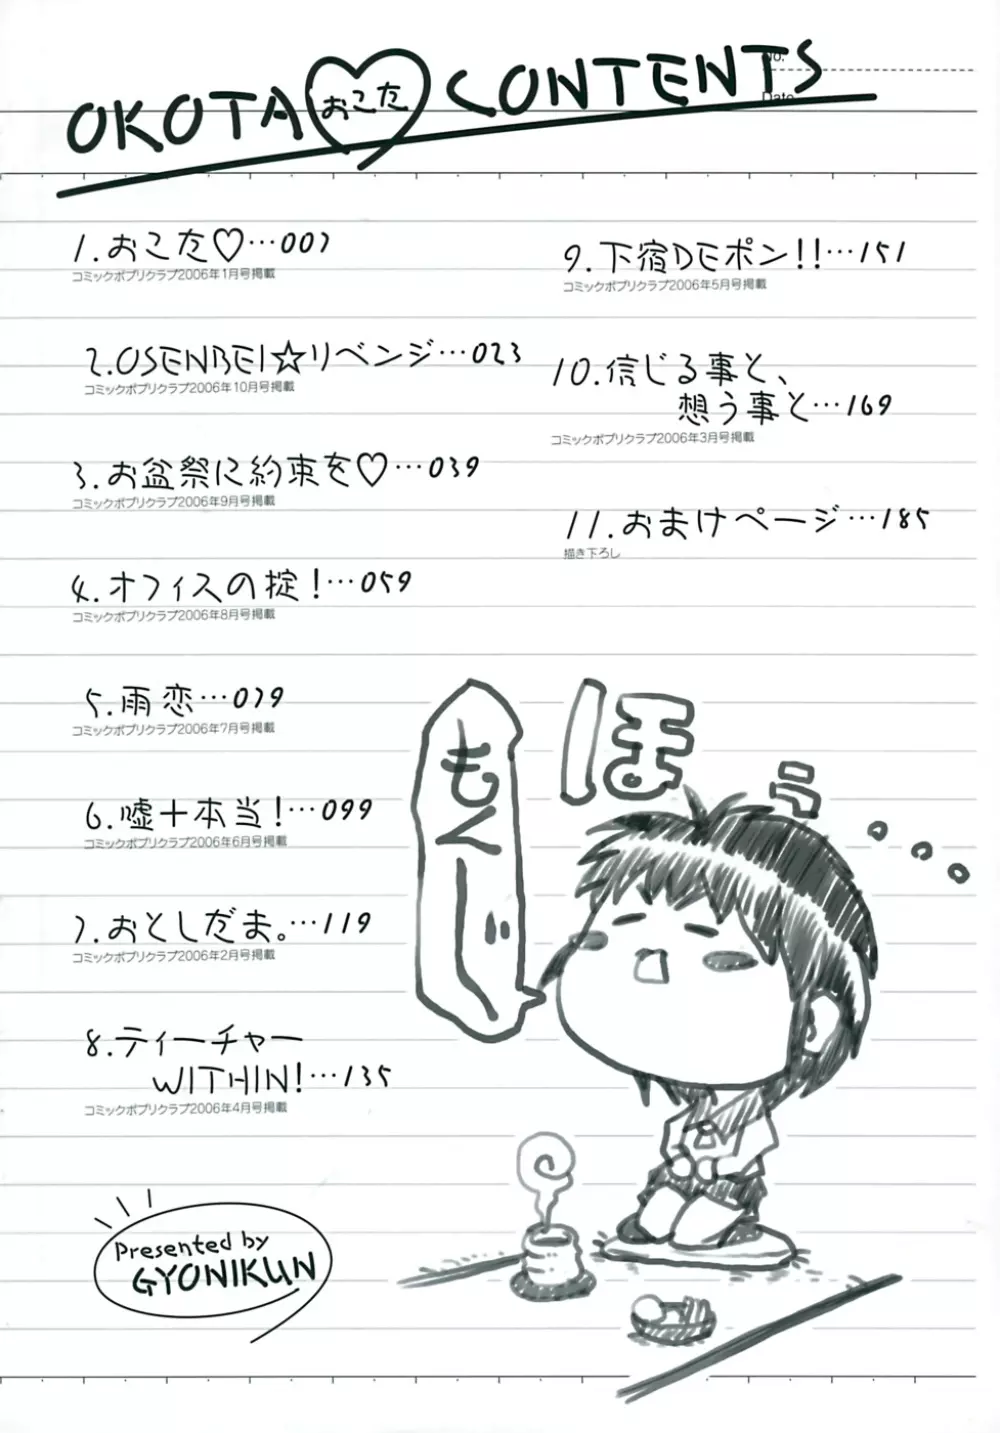 No.
Date
OKOTA おこた CONTENTS
1.おこた♡…007
コミックポプリクラブ2006年1月号掲載
2.OSENBEI☆リベンジ…023
コミックポプリクラブ2006年10月号掲載
3.お盆祭に約束を♡…039
コミックポプリクラブ2006年9月号掲載
4.オフィスの掟!…059
コミックポプリクラブ2006年8月号掲載
5.雨恋…079
コミックポプリクラブ2006年7月号掲載
6.嘘+本当!…099
コミックポプリクラブ2006年6月号掲載
7.おとしだま。…119
コミックポプリクラブ2006年2月号掲載
8.ティーチャー
WITHIN!…135
コミックポプリクラブ2006年4月号掲載
9.下宿DEポン!!…151
コミックポプリクラブ2006年5月号掲載
10.信じる事と、
想う事と…169
コミックポプリクラブ2006年3月号掲載
11.おまけページ…185
描き下ろし
もくーじ
ほ
Presented by
GYONIKUN